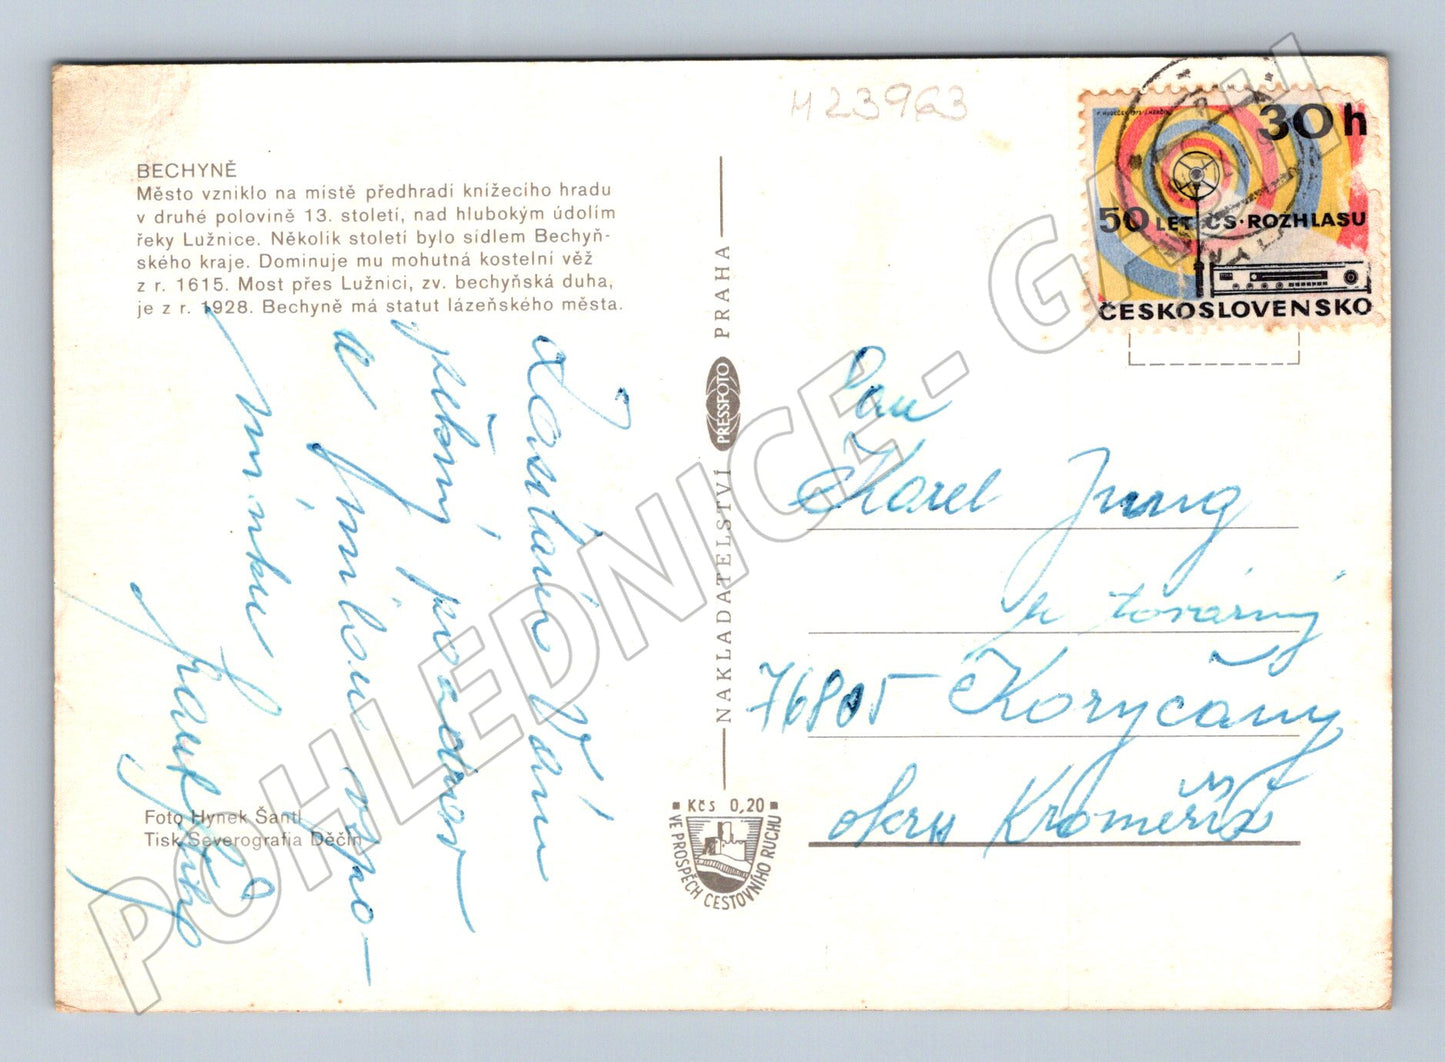 M23963
BECHYNĚ
Město vzniklo na místě předhradí knížecího hradu
v druhé polovině 13. století, nad hlubokým údolím
řeky Lužnice. Několik století bylo sídlem Bechyň-
ského kraje. Dominuje mu mohutná kostelní věž
z r. 1615. Most přes Lužnici, zv. bechyňská duha,
je z r. 1928. Bechyně má statut lázeňského města.
Zasílám Vám
pěkný pozdrav
a milou vzpo-
mínku
Foto Hynek Šantl
Tisk Severografia Děčín
NAKLADATELSTVÍ PRESSFOTO PRAHA
Kčs 0,20
VE PROSPĚCH CESTOVNÍHO RUCHU
30 h
50 LET ČS. ROZHLASU
ČESKOSLOVENSKO
Pan
Karel Jung
u továrny
76805 Koryčany
okres Kroměříž
POHLEDNICE - GARTH